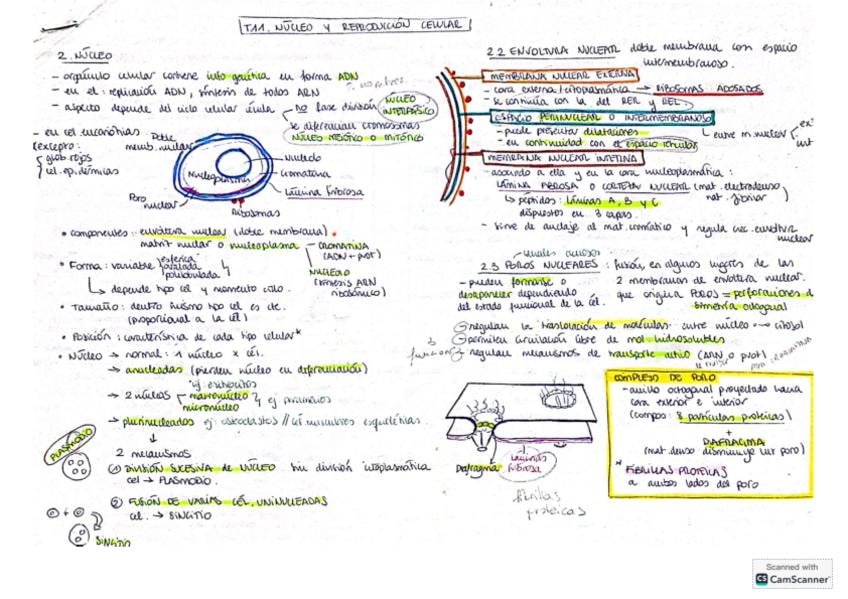 T.11. NÚCLEO Y REPRODUCCIÓN CELULAR
2. NÚCLEO
- orgánulo celular contiene info genética en forma ADN
- en el: replicación ADN, síntesis de todos ARN
- aspecto depende del ciclo celular
no fase división NÚCLEO INTERFÁSICO
se diferencian cromosomas
NÚCLEO MEIÓTICO O MITÓTICO
- en cel eucariotas
(excepto:
glob. rojos
cel. epidermias
Doble memb. nuclear
Nucleolo
Cromatina
Lámina fibrosa
Nucleoplasma
Poro nuclear
Ribosomas
• componentes: envoltura nuclear (doble membrana)
matriz nuclear o nucleoplasma
CROMATINA (ADN + prot)
NUCLEOLO (síntesis ARN ribosómico)
• Forma: variable
esférica
ovalada
polilobulada
depende tipo cel y momento ciclo.
• Tamaño: dentro mismo tipo cel es cte.
(proporcional a la cel)
• Posición: característica de cada tipo celular*
• Núcleo → normal: 1 núcleo x cel.
→ anucleadas (pierden núcleo en diferenciación)
ej eritrocitos
→ 2 núcleos
macronúcleo
micronúcleo
ej paramecios
→ plurinucleados ej: osteoclastos // cel musculares esqueléticas.
↓
2 mecanismos
PLASMODIO
① DIVISIÓN SUCESIVA de NÚCLEO sin división citoplasmática
cel → PLASMODIO.
② FUSIÓN DE VARIAS CÉL. UNINUCLEADAS
cel. → SINCITIO
SINCITIO
2.2 ENVOLTURA NUCLEAR doble membrana con espacio
intermembranoso.
MEMBRANA NUCLEAR EXTERNA
- cara externa/citoplasmática → RIBOSOMAS ADOSADOS
- se continúa con la del RER y REL
ESPACIO PERINUCLEAR O INTERMEMBRANOSO
- puede presentar dilataciones
entre m. nuclear
- en continuidad con el espacio reticular
MEMBRANA NUCLEAR INTERNA
- asociado a ella y en la cara nucleoplasmática:
LÁMINA FIBROSA O CORTEZA NUCLEAR (mat. electrodenso
mat. fibrilar)
↳ péptidos: láminas A, B y C
dispuestos en 3 capas.
- sirve de anclaje al mat. cromático y regula crec. envoltura
nuclear
canales acuosos
2.3 POROS NUCLEARES: fusión, en algunos lugares de las
2 membranas de envoltura nuclear.
que origina POROS = perforaciones d
simetría octagonal
- pueden formarse o
desaparecer dependiendo
del estado funcional de la cél.
3 funciones
regulan la traslocación de moléculas entre núcleo ↔ citosol
permiten circulación libre de mol. hidrosolubles
regulan mecanismos de transporte activo (ARN o prot)
Diafragma
Lámina fibrosa
fibrillas
proteicas
COMPLEJO DE PORO
- anillo octagonal proyectado hacia
cara exterior e interior
(compos: 8 partículas proteicas)
+
DIAFRAGMA
(mat. denso disminuye luz poro)
* FIBRILLAS PROTEICAS
a ambos lados del poro
Scanned with
CS CamScanner